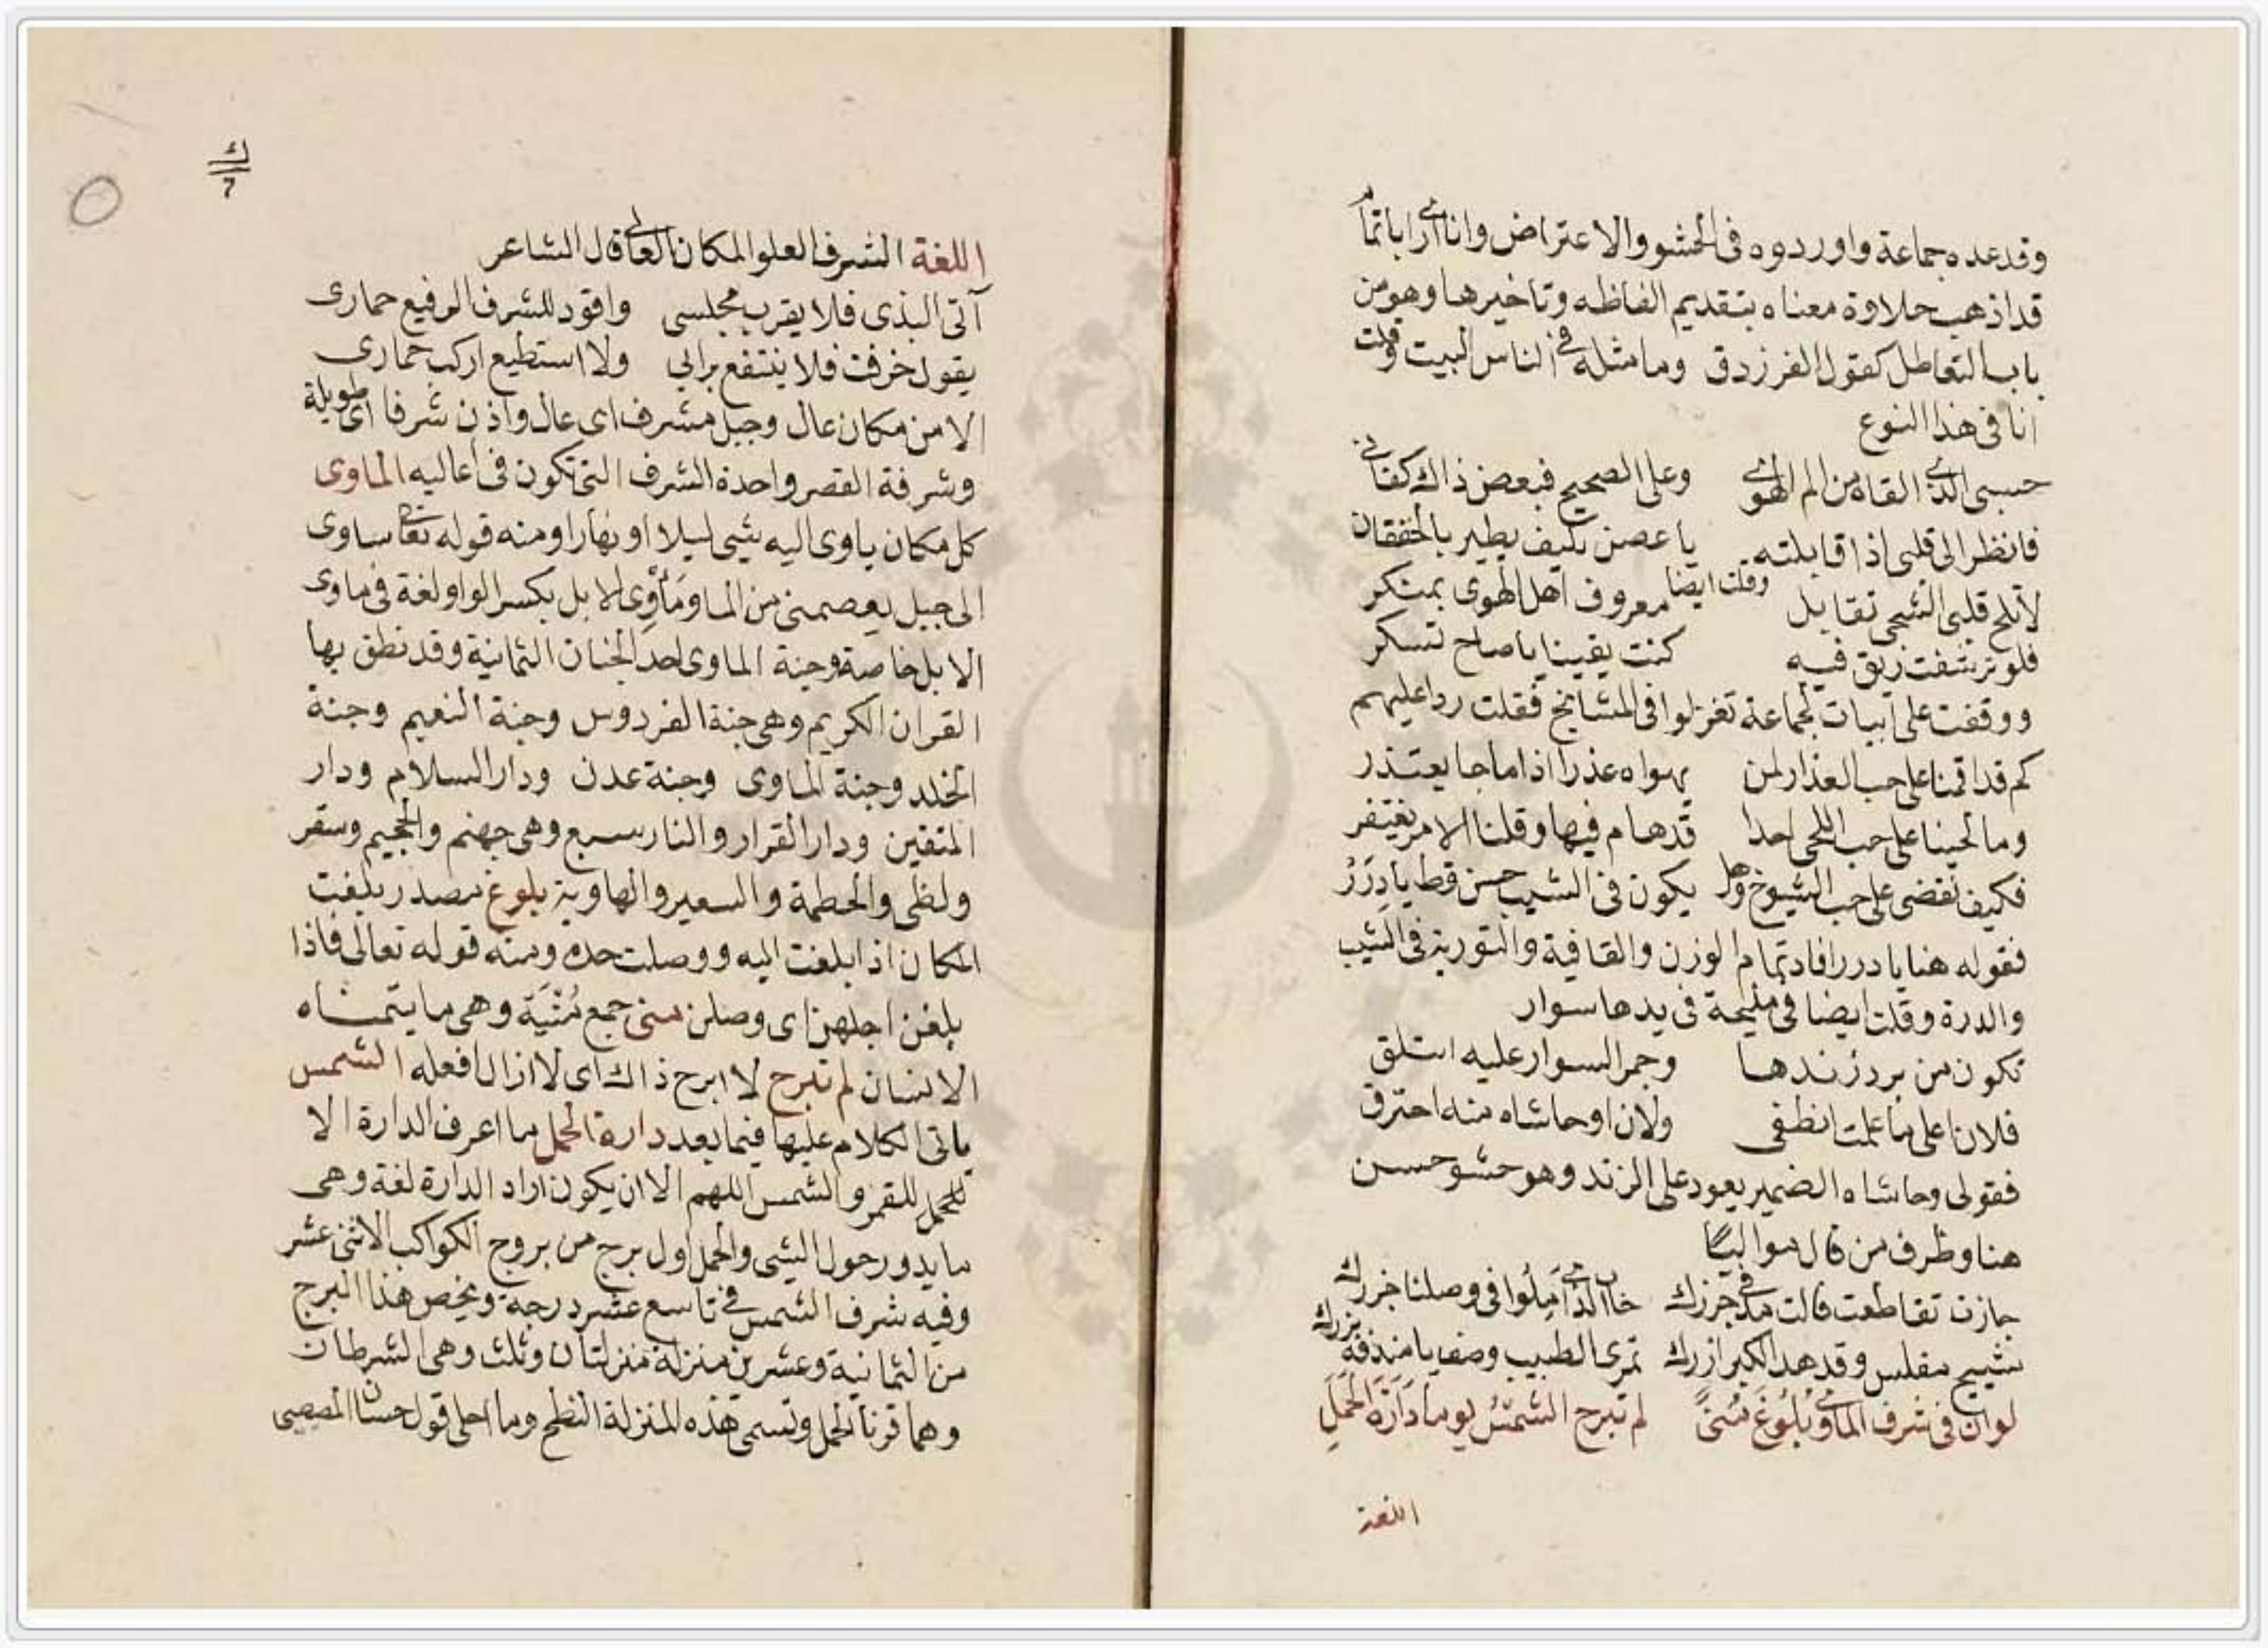 وقد عده جماعة واوردوه في الحشو والاعتراض وانا ارى ابا تمام
قد اذهب حلاوة معناه بتقديم الفاظه وتاخيرها وهو من
باب التعاطل كقول الفرزدق وما مثله في الناس البيت وقلت
انا في هذا النوع
حسبي الذي القاه من الم الهوى وعلى الصحيح فبعض ذاك كفاني
فانظر الى قلبي اذا قابلته يا غصن كيف يطير بالخفقان
وقلت ايضا
لا تلح قلبي الشجي تقابل معروف اهل الهوى بمنكر
فلو ترشفت ريق فيه كنت يقينا يا صاح تسكر
ووقفت على ابيات لجماعة تغزلوا في المشايخ فقلت ردا عليهم
كم قد اقمنا على حب العذار لمن يهواه عذرا اذا ما جا يعتذر
وما لحينا على حب اللحى احدا قد هام فيها وقلنا الامر يغتفر
فكيف نغضي على حب الشيوخ وهل يكون في الشيب حسن قط يا دُرَرُ
فقوله هنا يا درر افاد تمام الوزن والقافية والتورية في الشيب
والدرة وقلت ايضا في مليحة في يدها سوار
تكون من برد زندها وجمر السوار عليه ائتلق
فلان على ما علمت انطفى ولان او حاشاه منه احترق
فقولي وحاشاه الضمير يعود على الزند وهو حشو حسن
هنا وظرف من قال مواليا
جازت تقاطعت قالت مد في جزرك خاب الذي املوا في وصلنا خزرك
شييح مفلس وقد هد الكبر ازرك تمرى الطبيب وصف يا منذفه بزرك
لو ان في شرف الماوى بلوغ منى لم تبرح الشمس يوما دارة الحمل
اللغة
اللغة الشرف العلو المكان العالي قال الشاعر
آتي الندى فلا يقرب مجلسي واقود للشرف الرفيع حماري
يقول خرفت فلا ينتفع برايي ولا استطيع اركب حماري
الا من مكان عال وجبل مشرف اى عال واذن شرفا اى طويلة
وشرفة القصر واحدة الشرف التي تكون في اعاليه الماوى
كل مكان ياوى اليه شيي ليلا او نهارا ومنه قوله تعالى ساوى
الى جبل يعصمني من الما ومَأْوِى الابل بكسر الواو لغة في ماوى
الابل خاصة وجنة الماوى احد الجنان الثمانية وقد نطق بها
القران الكريم وهي جنة الفردوس وجنة النعيم وجنة
الخلد وجنة الماوى وجنة عدن ودار السلام ودار
المتقين ودار القرار والنار سبع وهي جهنم والجحيم وسقر
ولظى والحطمة والسعير والهاوية بلوغ مصدر بلغت
المكان اذا بلغت اليه ووصلت حده ومنه قوله تعالى فاذا
بلغن اجلهن اى وصلن منى جمع مُنْيَة وهي ما يتمناه
الانسان لم تبرح لا ابرح ذاك اى لا ازال افعله الشمس
ياتى الكلام عليها فيما بعد دارة الحمل ما اعرف الدارة الا
للحمل للقمر والشمس اللهم الا ان يكون اراد الدارة لغة وهي
ما يدور حول الشي والحمل اول برج من بروج الكواكب الاثنى عشر
وفيه شرف الشمس في تاسع عشر درجة ويخص هذا البرج
من الثمانية وعشرين منزلة منزلتان وثلث وهي الشرطان
وهما قرنا الحمل وتسمى هذه المنزلة النطح وما احلى قول حسان المصيصي